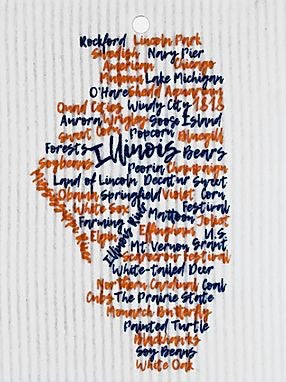 Rockford Lincoln Park
Swedish Navy Pier
American Chicago
Museum Lake Michigan
O'Hare Shedd Aquarium
Quad Cities Windy City 1818
Aurora Wrigley Goose Island
Sweet Corn Popcorn Bluegill
Forests Illinois Bears
Soybeans Peoria Champaign
Mississippi River
Land of Lincoln Decatur Sweet
Obama Springfield Violet Corn
White Sox Festival
Farming Illinois River Mattoon Joliet
Elgin Effingham U.S.
Mt Vernon Grant
Scarecrow Festival
White-tailed Deer
Northern Cardinal Coal
Cubs The Prairie State
Monarch Butterfly
Painted Turtle
Blackhawks
Soy Beans
White Oak